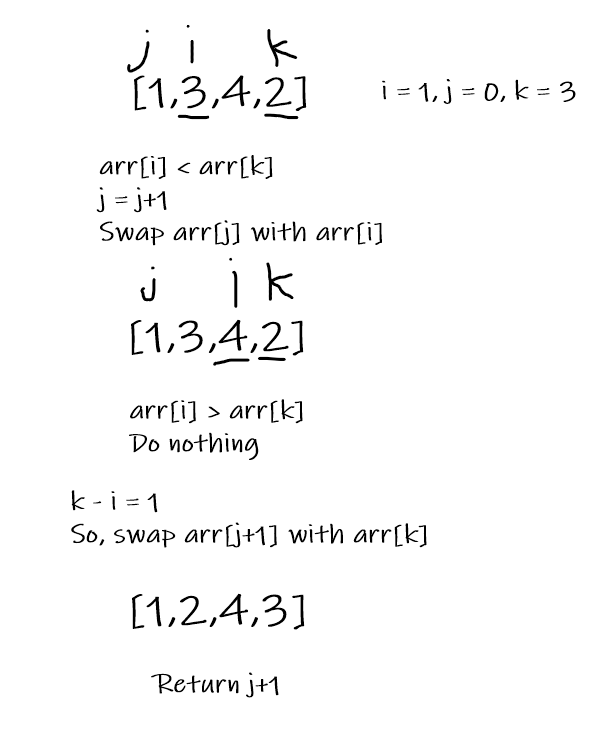 j i k
[1,3,4,2] i = 1, j = 0, k = 3
arr[i] < arr[k]
j = j+1
Swap arr[j] with arr[i]
j i k
[1,3,4,2]
arr[i] > arr[k]
Do nothing
k - i = 1
So, swap arr[j+1] with arr[k]
[1,2,4,3]
Return j+1